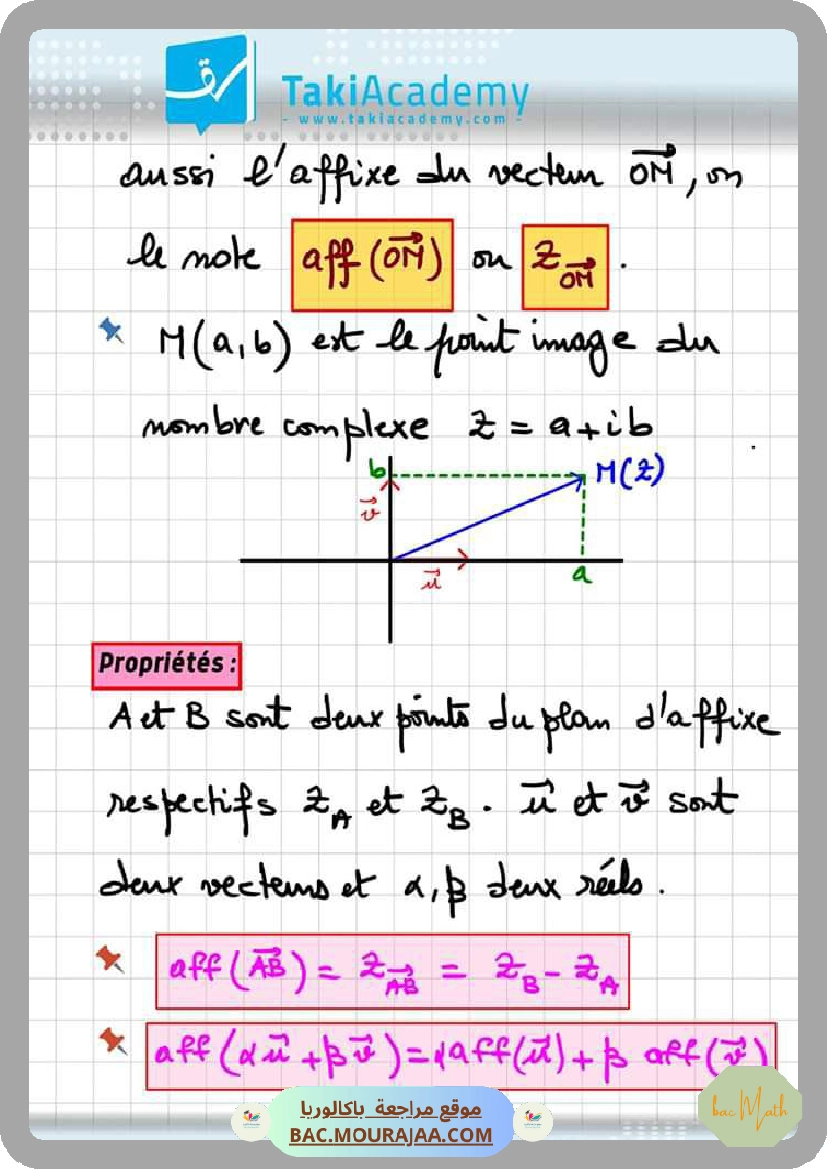 TakiAcademy
- www.takiacademy.com -
aussi l'affixe du vecteur OM→, on
le note aff(OM→) ou Z_OM→ .
M(a,b) est le point image du
nombre complexe z = a+ib
b M(z)
v→
u→ a
Propriétés :
A et B sont deux points du plan d'affixe
respectifs z_A et z_B . u→ et v→ sont
deux vecteurs et α, β deux réels .
aff(AB→) = z_AB→ = z_B - z_A
aff(αu→ + βv→) = αaff(u→) + β aff(v→)
bac Math
موقع مراجعة باكالوريا
BAC.MOURAJAA.COM